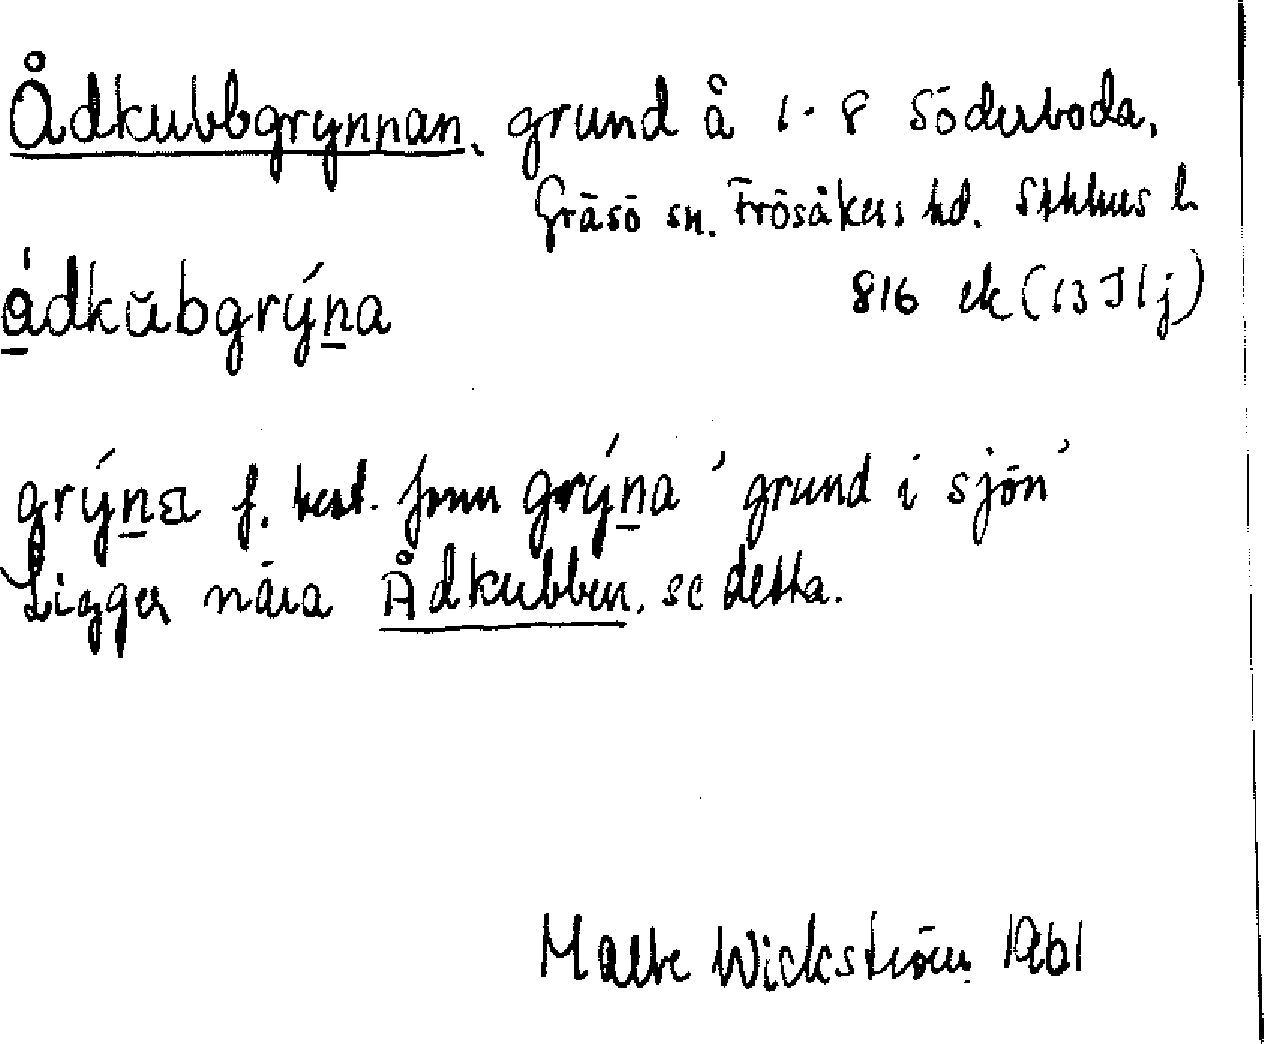 Ådkubbgrynnan, grund å 1-8 Söderboda,
Gräsö sn. Frösåkers hd. Sthlms l.
ádkŭbgrýna
816 ek (13 I 1 j)
grýna f. best. form grýna 'grund i sjön'
Ligger nära Ådkubben, se detta.
Malte Wickström 1961